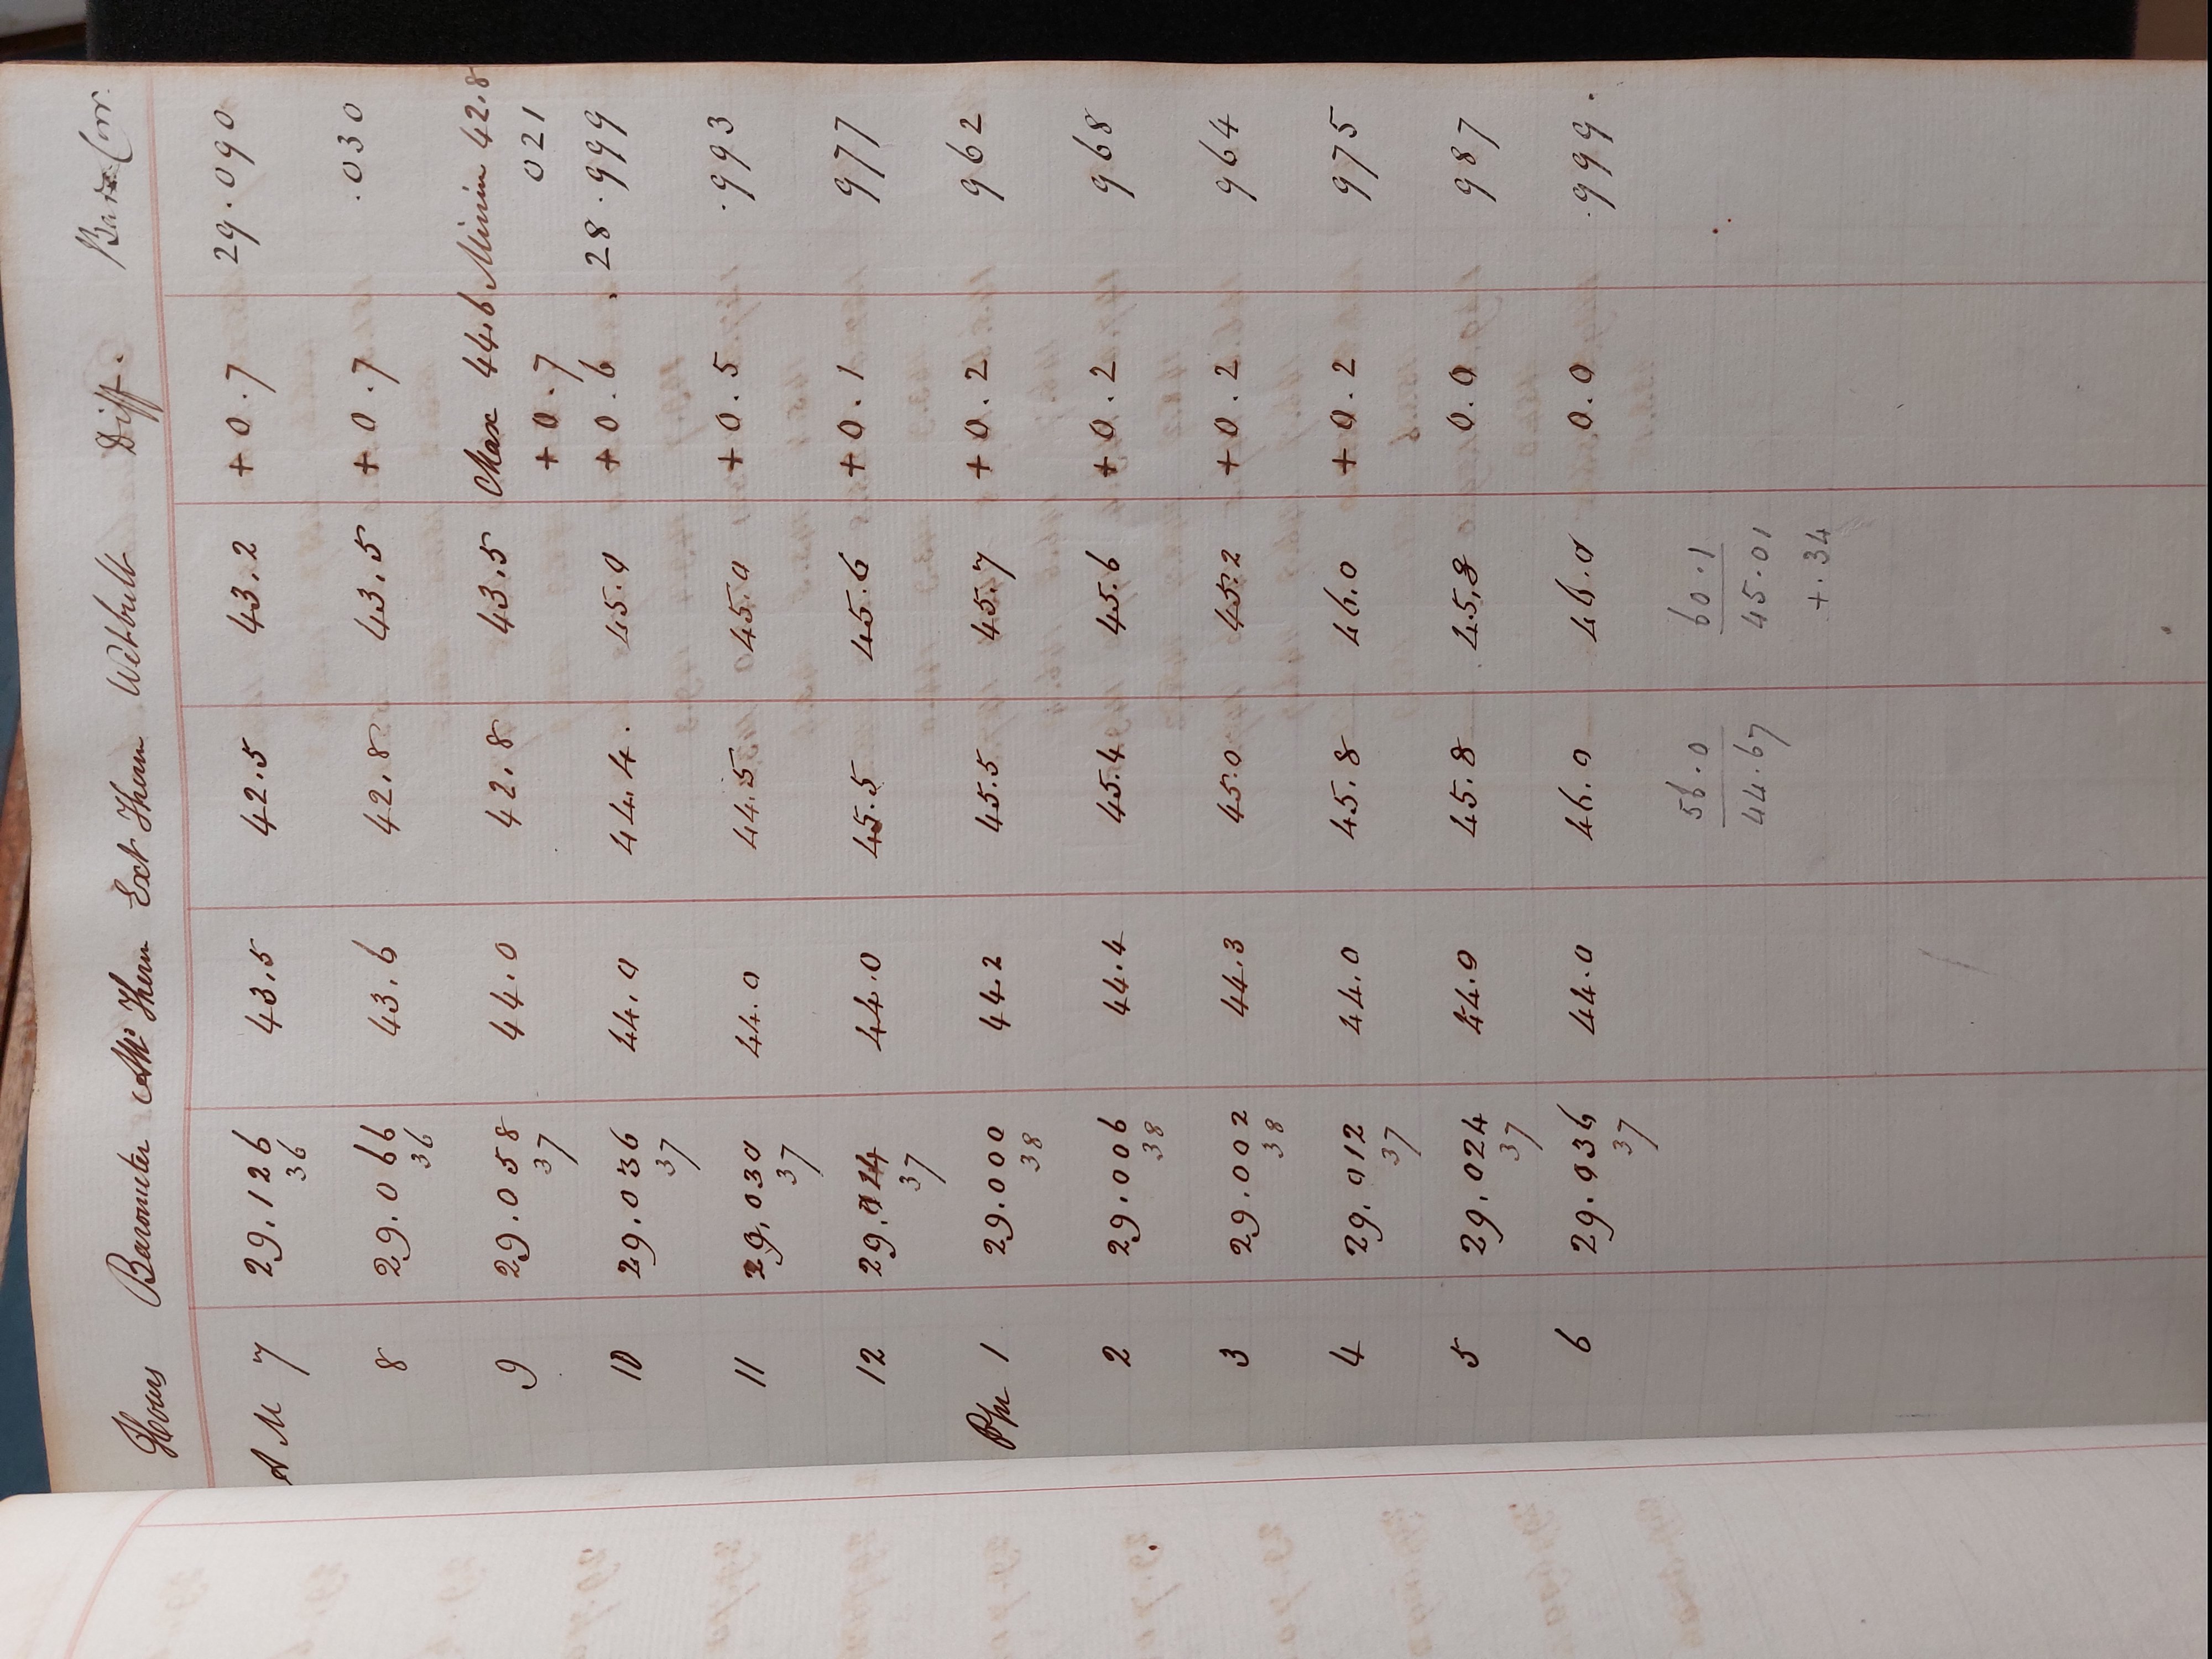 Hours Barometer Att^d Therm Ext Therm Wetbulb Diff. Baro Corr.
A M 7 29.126 43.5 42.5 43.2 + 0.7 29.090
36
8 29.066 43.6 42.8 43.5 + 0.7 .030
36
9 29.058 44.0 42.8 43.5 Max 44.6 Minim 42.8
37 + 0.7 021
10 29.036 44.0 44.4. 45.0 + 0.6 28.999
37
11 29,030 44.0 44.5 45.0 + 0.5 .993
37
12 29.014 44.0 45.5 45.6 + 0.1 977
37
Pm 1 29.000 44.2 45.5 45.7 + 0.2 962
38
2 29.006 44.4 45.4 45.6 + 0.2 968
38
3 29.002 44.3 45.0 45.2 + 0.2 964
38
4 29.012 44.0 45.8 46.0 + 0.2 975
37
5 29.024 44.0 45.8 45,8 0.0 987
37
6 29.036 44.0 46.0 46.0 0.0 .999.
37
56.0 60.1
44.67 45.01
+.34